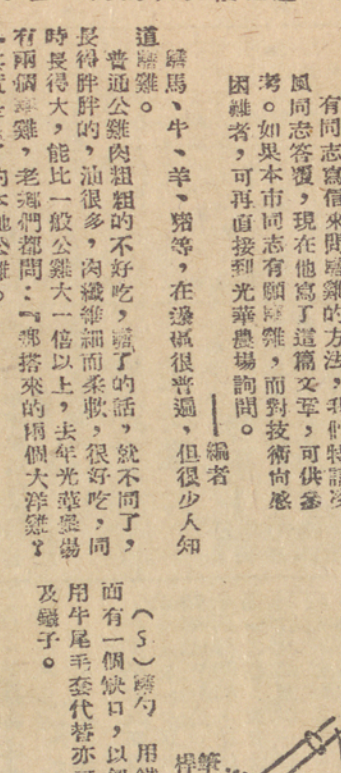 有同志寫信來問騸雞的方法,我們特請凌
風同志答覆,現在他寫了這篇文章,可供參
考。如果本市同志有願騸雞,而對技術尚感
困難者,可再直接到光華農場詢問。
——編者
騸馬、牛、羊、豬等,在邊區很普遍,但很少人知
道騸雞。
普通公雞肉粗粗的不好吃,騸了的話,就不同了,
長得胖胖的,油很多,肉纖維細而柔軟,很好吃,同
時長得大,能比一般公雞大一倍以上,去年光華農場
有兩個騸雞,老鄉們都問:『那搭來的兩個大洋雞?
(5)騸勺 用鐵
面有一個缺口,以
用牛尾毛套代替亦
及鑷子。